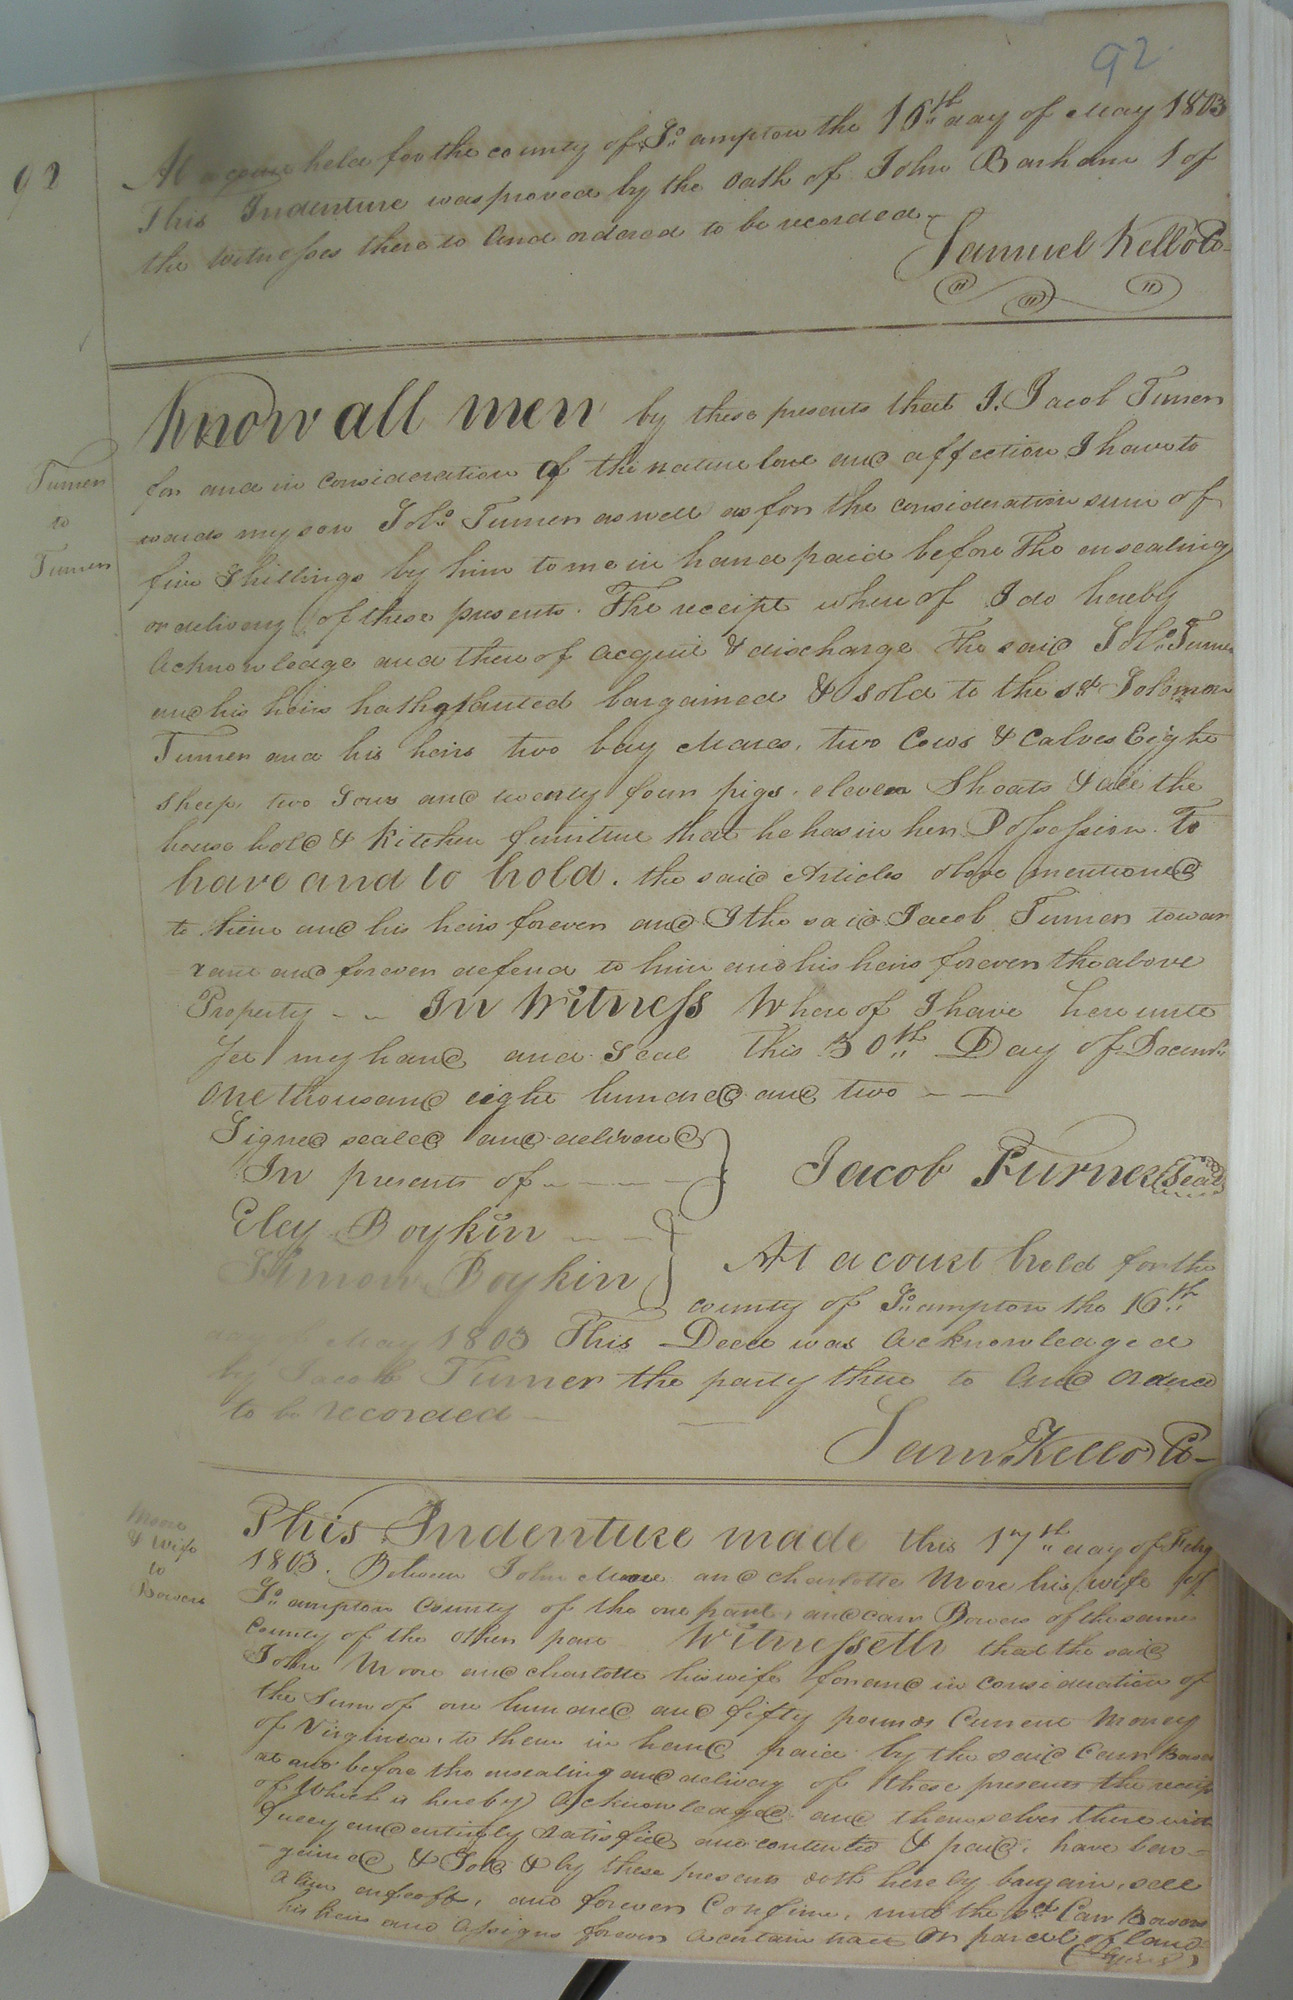 92
92
At a court held for the county of So. ampton the 16th day of May 1803
This Indenture was proved by the Oath of John Barham 1 of
the witnesses there to and ordered to be recorded
Samuel Kello Co
Turner
to
Turner
Know all men by these presents that I. Jacob Turner
for and in consideration of the nature love and affection I have to
wards my son Solo. Turner as well as for the consideration sum of
five Shillings by him to me in hand paid before The ensealing
or delivery of these presents. The receipt where of I do hereby
acknowledge and there of acquit & discharge the said Solo. Turner
and his heirs hath granted bargained & sold to the sd. Solomon
Turner and his heirs two bay Mares, two Cows & Calves Eight
Sheep, two Sows and twenty four pigs, eleven Shoats & all the
house hold & Kitchen furniture that he has in her Possession. To
have and to hold. the said Articles above mentioned
to him and his heirs forever and I the said Jacob Turner to war
rant and forever defend to him and his heirs forever the above
Property -- In Witness Where of I have here unto
Set my hand and Seal this 30th Day of Decembr.
One thousand eight hundred and two --
Signed sealed and delivered
In presents of
Jacob Turner Seal
Eley Boykin
Simon Boykin
At a court held for the
county of So. ampton the 16th
day of May 1803 This Deed was Acknowledged
by Jacob Turner the party there to and Ordered
to be recorded
Saml. Kello Co
Moore
& Wife
to
Bowers
This Indenture made this 17th day of Feby
1803. Between John Moore and Charlotte Moore his wife of
So. ampton County of the one part, and Carr Bowers of the same
County of the other part Witnesseth that the said
John Moore and Charlotte his wife for and in consideration of
the Sum of one hundred and fifty pounds Current Money
of Virginia, to them in hand paid by the said Carr Bowers
at and before the ensealing and delivery of these presents the receipt
of Which is hereby Acknowledged and themselves there with
fully and entirely satisfied and contented & paid, have bar-
gained & Sold & by these presents doth here by bargain, sell
alien enfeoff, and forever Confirm, unto the sd. Carr Bowers
his heirs and Assigns forever a certain tract or parcel of land